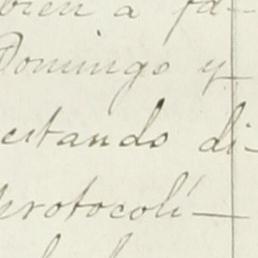 bien a fa-
Domingo y
estando di-
protocolí-